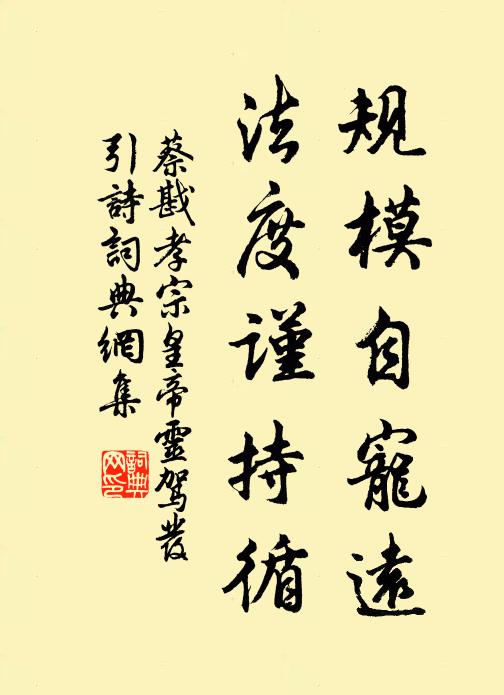 規模自寵遠
法度謹持循
蔡戡孝宗皇帝靈駕發
引詩詞典網集
詞典
网印